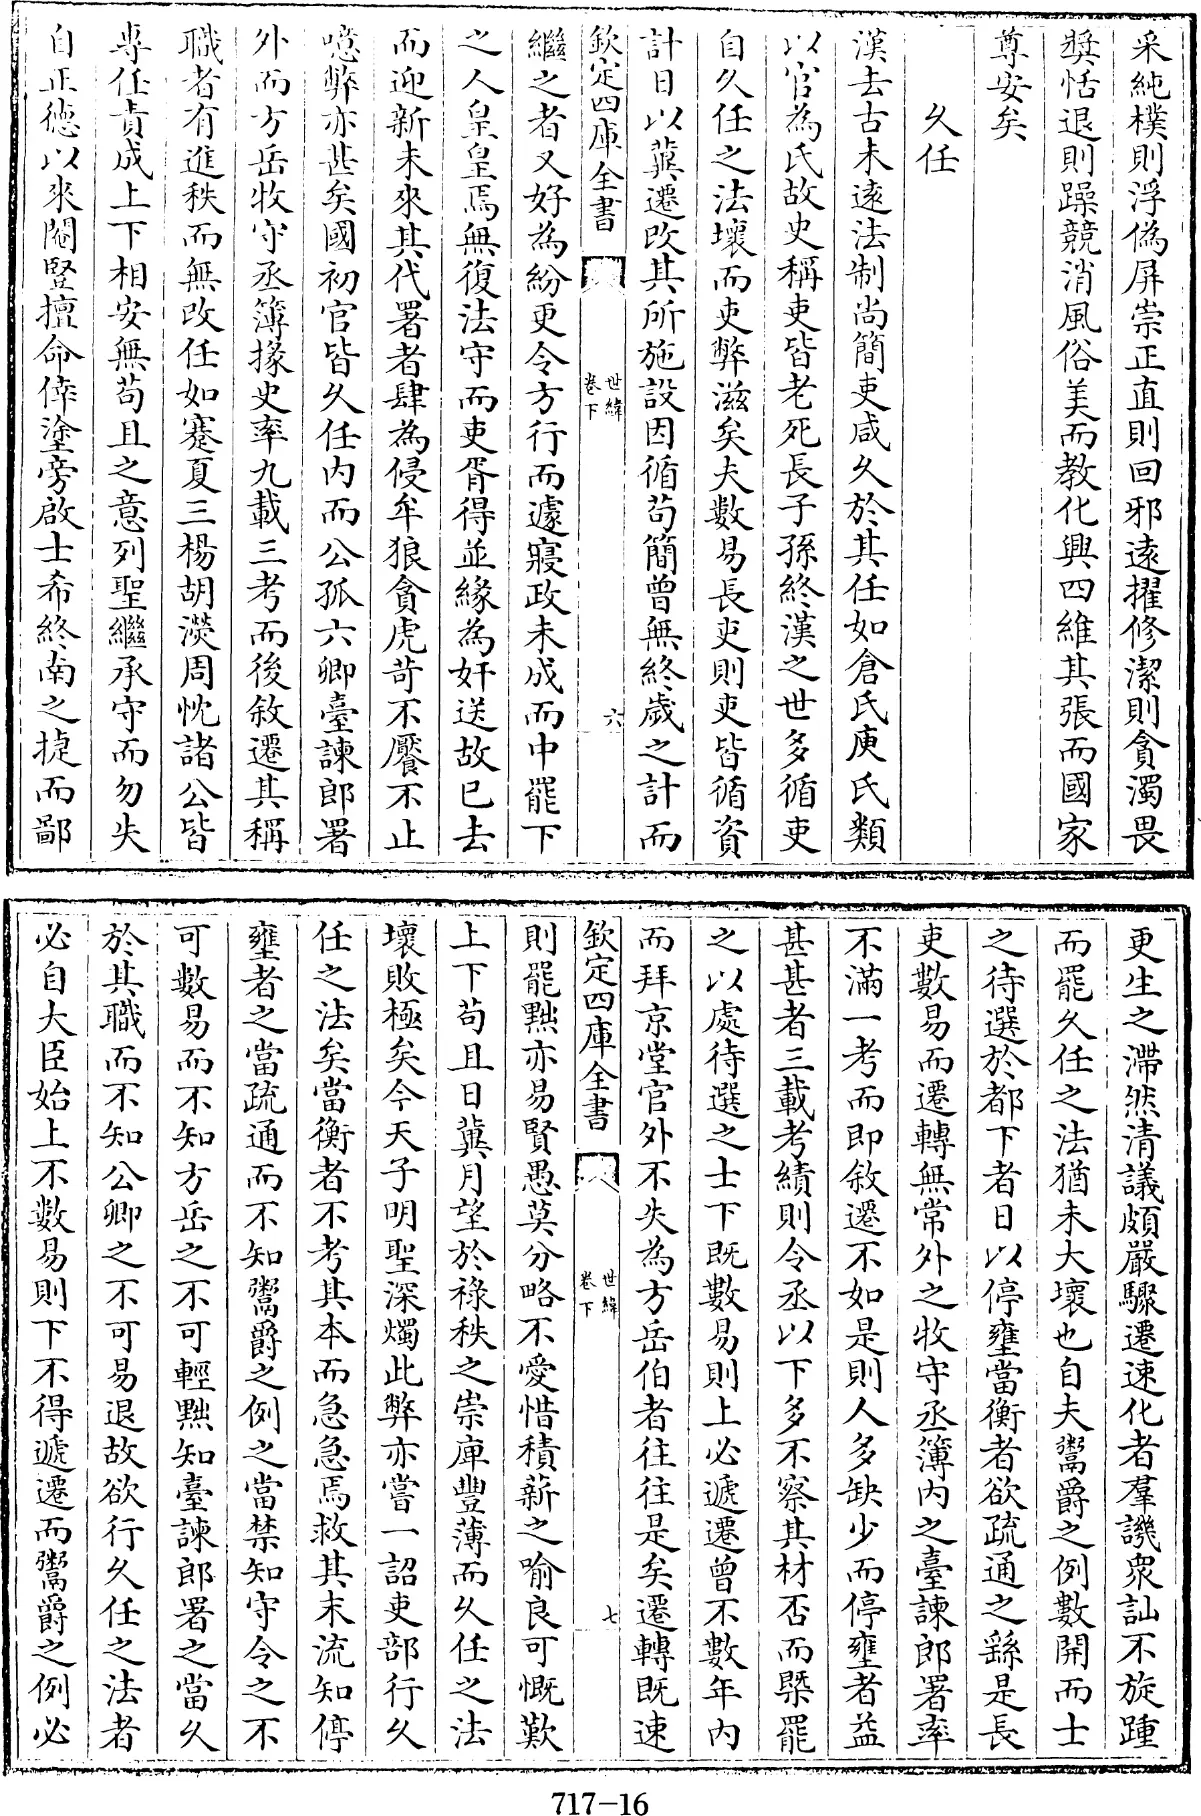 采純樸則浮偽屏崇正直則回邪遠擢修潔則貪濁畏
奬恬退則躁競消風俗美而教化興四維其張而國家
尊安矣
久任
漢去古未遠法制尚簡吏咸久於其任如倉氏庾氏類
以官為氏故史稱吏皆老死長子孫終漢之世多循吏
自久任之法壞而吏弊滋矣夫數易長吏則吏皆循資
計日以冀遷改其所施設因循苟簡曾無終歲之計而
欽定四庫全書
世緯
卷下
六
繼之者又好為紛更令方行而遽寢政未成而中罷下
之人皇皇焉無復法守而吏胥得並緣為奸送故已去
而迎新未來其代署者肆為侵牟狼貪虎苛不饜不止
噫弊亦甚矣國初官皆久任内而公孤六卿臺諫郎署
外而方岳牧守丞簿掾史率九載三考而後敘遷其稱
職者有進秩而無改任如蹇夏三楊胡濙周忱諸公皆
專任責成上下相安無苟且之意列聖繼承守而勿失
自正德以來閹豎擅命倖塗旁啟士希終南之捷而鄙
更生之滯然清議頗嚴驟遷速化者羣譏衆訕不旋踵
而罷久任之法猶未大壞也自夫鬻爵之例數開而士
之待選於都下者日以停壅當衡者欲疏通之繇是長
吏數易而遷轉無常外之牧守丞簿内之臺諫郎署率
不滿一考而即敘遷不如是則人多缺少而停壅者益
甚甚者三載考績則令丞以下多不察其材否而槩罷
之以處待選之士下既數易則上必遞遷曾不數年内
而拜京堂官外不失為方岳伯者往往是矣遷轉既速
欽定四庫全書
世緯
卷下
七
則罷黜亦易賢愚莫分略不愛惜積薪之喻良可慨歎
上下苟且日冀月望於禄秩之崇庳豐薄而久任之法
壞敗極矣今天子明聖深燭此弊亦嘗一詔吏部行久
任之法矣當衡者不考其本而急急焉救其末流知停
壅者之當疏通而不知鬻爵之例之當禁知守令之不
可數易而不知方岳之不可輕黜知臺諫郎署之當久
於其職而不知公卿之不可易退故欲行久任之法者
必自大臣始上不數易則下不得遞遷而鬻爵之例必
717-16